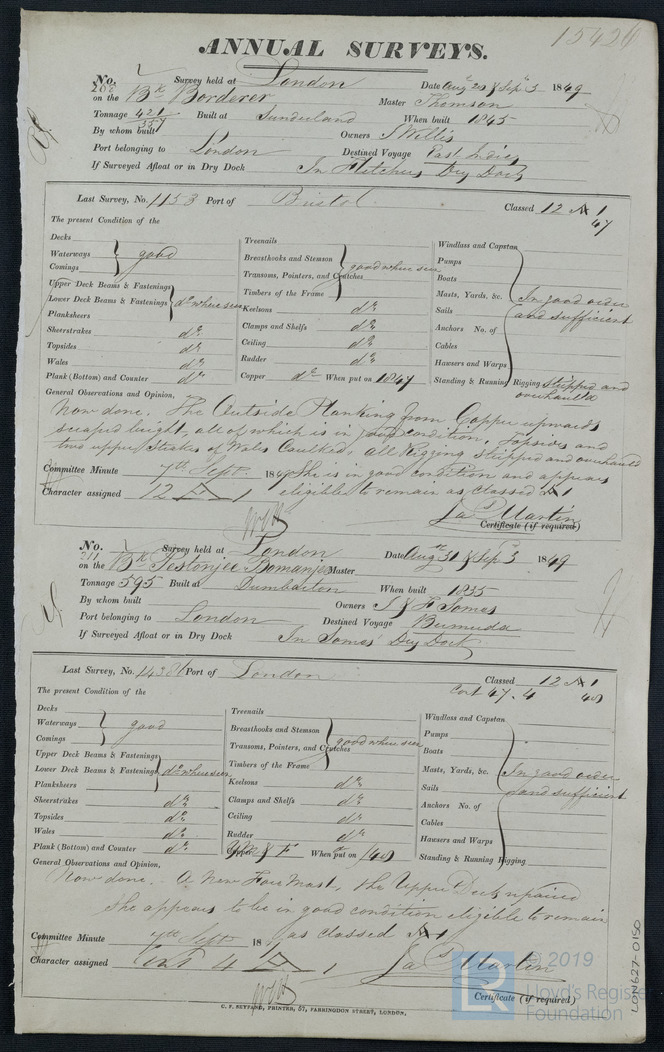 ANNUAL SURVEYS.
No. Survey held at London Date Augt 29 & Sept 3 1849
on the Bk Borderer Master Thomson
Tonnage 421 Built at Sunderland When built 1845
357
By whom built Owners J Willis
Port belonging to London Destined Voyage East Indies
If Surveyed Afloat or in Dry Dock In Fletchers Dry Dock
Last Survey, No. 1153 Port of Bristol Classed 12 A 1
47
The present Condition of the
Decks
Waterways good
Comings
Upper Deck Beams & Fastenings
Lower Deck Beams & Fastenings do where seen
Planksheers
Sheerstrakes do
Topsides do
Wales do
Plank (Bottom) and Counter do
Treenails
Breasthooks and Stemson
Transoms, Pointers, and Crutches good where seen
Timbers of the Frame
Keelsons do
Clamps and Shelfs do
Ceiling do
Rudder do
Copper do When put on 1847
Windlass and Capstan
Pumps
Boats
Masts, Yards, &c. In good order
Sails and sufficient
Anchors No. of
Cables
Hawsers and Warps
Standing & Running Rigging stripped and
overhauled
General Observations and Opinion,
Now done. The Outside Planking from Copper upwards
scraped bright, all of which is in good condition, Topsides and
two upper Strakes of Wales Caulked, all Rigging stripped and overhauled
Committee Minute 7th Sept. 1849 She is in good condition and appears
Character assigned 12 A 1 eligible to remain as classed A 1
Jas Martin
Certificate (if required)
No. Survey held at London Date Augt 31 & Sept 3 1849
211
on the Bk Pestonjee Bomanjee Master
Tonnage 595 Built at Dumbarton When built 1835
By whom built Owners J & F Somes
Port belonging to London Destined Voyage Bermuda
If Surveyed Afloat or in Dry Dock In Somes' Dry Dock
Last Survey, No. 14386 Port of London Classed 12 A 1
Cont 47. 4
The present Condition of the
Decks
Waterways good
Comings
Upper Deck Beams & Fastenings
Lower Deck Beams & Fastenings do where seen
Planksheers
Sheerstrakes do
Topsides do
Wales do
Plank (Bottom) and Counter do
Treenails
Breasthooks and Stemson
Transoms, Pointers, and Crutches good where seen
Timbers of the Frame
Keelsons do
Clamps and Shelfs do
Ceiling do
Rudder do
When put on
Windlass and Capstan
Pumps
Boats
Masts, Yards, &c. In good order
Sails and sufficient
Anchors No. of
Cables
Hawsers and Warps
Standing & Running Rigging
General Observations and Opinion,
Now done. A New Fore Mast, the Upper Deck repaired
She appears to be in good condition eligible to remain
as classed A 1
Committee Minute 7th Sept 18
Character assigned Cont 4 A 1
Jas Martin
Certificate (if required)
C. F. SEYFANG, PRINTER, 57, FARRINGDON STREET, LONDON.
LON627-0150
© 2019
Lloyd's Register
Foundation